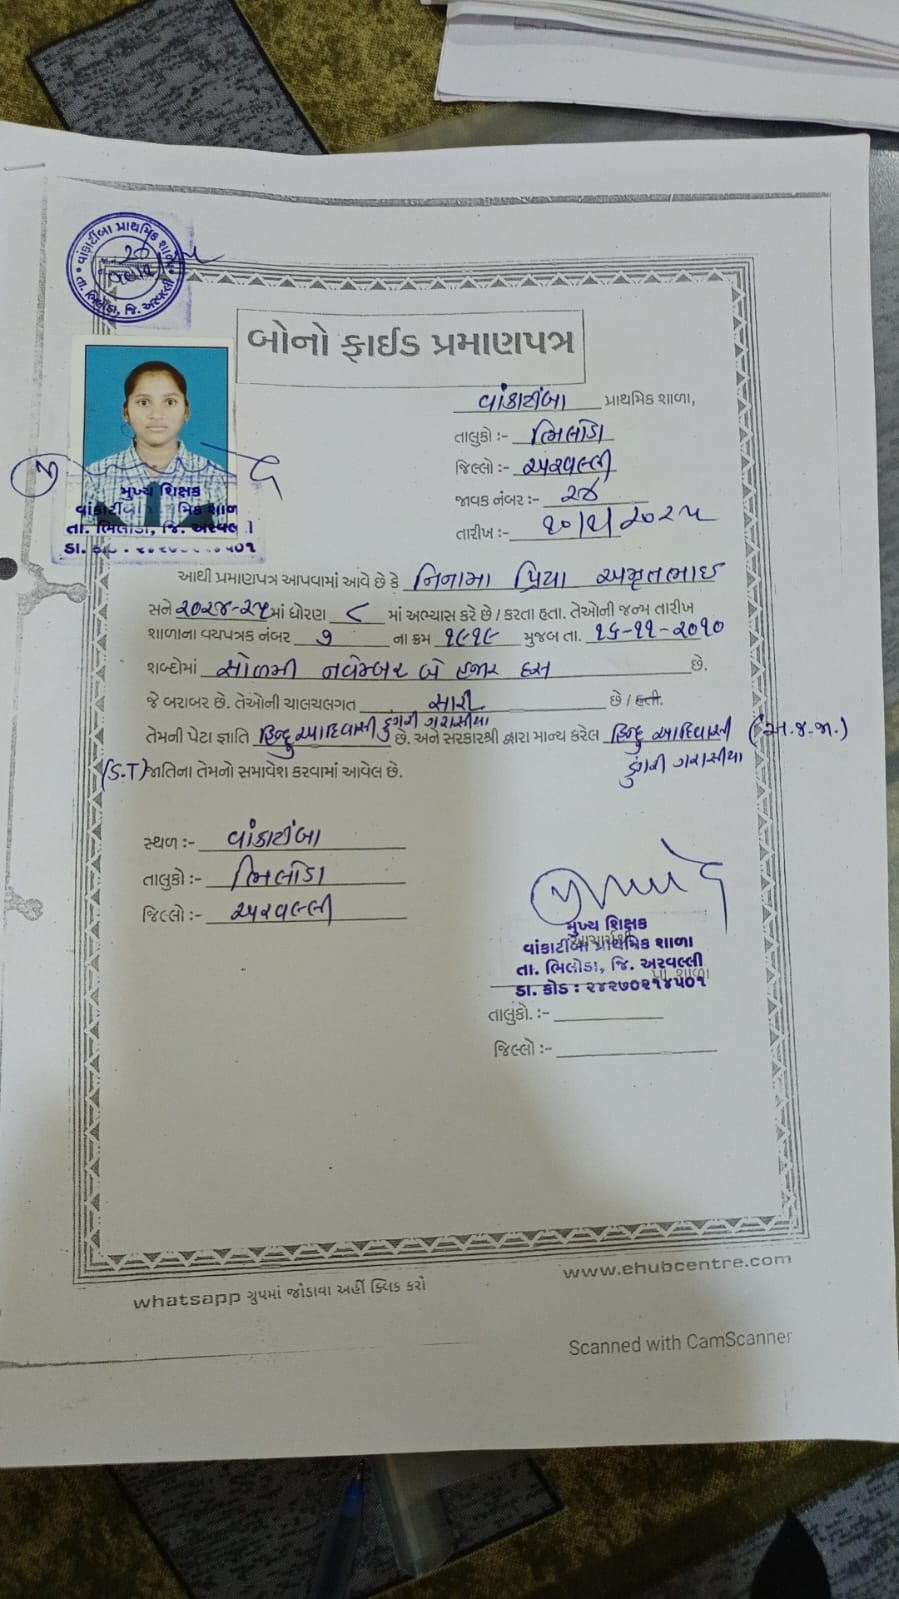 વાંકાટીંબા પ્રાથમિક શાળા
તા. ભિલોડા, જિ. અરવલ્લી
બોનો ફાઈડ પ્રમાણપત્ર
વાંકાટીંબા પ્રાથમિક શાળા,
તાલુકો :- ભિલોડા
જિલ્લો :- અરવલ્લી
જાવક નંબર :- ૨૪
તારીખ :- ૨૦૨૫
મુખ્ય શિક્ષક
વાંકાટીંબા
તા. ભિલોડા, જિ. અરવલ
આથી પ્રમાણપત્ર આપવામાં આવે છે કે નિનામા પ્રિયા અમૃતભાઈ
સને ૨૦૨૪-૨૫માં ધોરણ ૮ માં અભ્યાસ કરે છે / કરતા હતા. તેઓની જન્મ તારીખ
શાળાના વયપત્રક નંબર ૭ ના ક્રમ ૧૯૧૯ મુજબ તા. ૧૬-૧૧-૨૦૧૦
શબ્દોમાં સોળમી નવેમ્બર બે હજાર દસ છે.
જે બરાબર છે. તેઓની ચાલચલગત સારી છે / હતી.
તેમની પેટા જ્ઞાતિ હિન્દુ આદિવાસી ડુંગરી ગરાસીયા છે. અને સરકારશ્રી દ્વારા માન્ય કરેલ હિન્દુ આદિવાસી (અ.જ.જા.)
ડુંગરી ગરાસીયા
(S.T) જાતિના તેમનો સમાવેશ કરવામાં આવેલ છે.
સ્થળ :- વાંકાટીંબા
તાલુકો :- ભિલોડા
જિલ્લો :- અરવલ્લી
મુખ્ય શિક્ષક
વાંકાટીંબા પ્રાથમિક શાળા
તા. ભિલોડા, જિ. અરવલ્લી
ડા. કોડ : ૨૪૨૭૦૨૧૪૫૦૧
તાલુકો. :-
જિલ્લો :-
whatsapp ગ્રુપમાં જોડાવા અહીં ક્લિક કરો
www.ehubcentre.com
Scanned with CamScanner